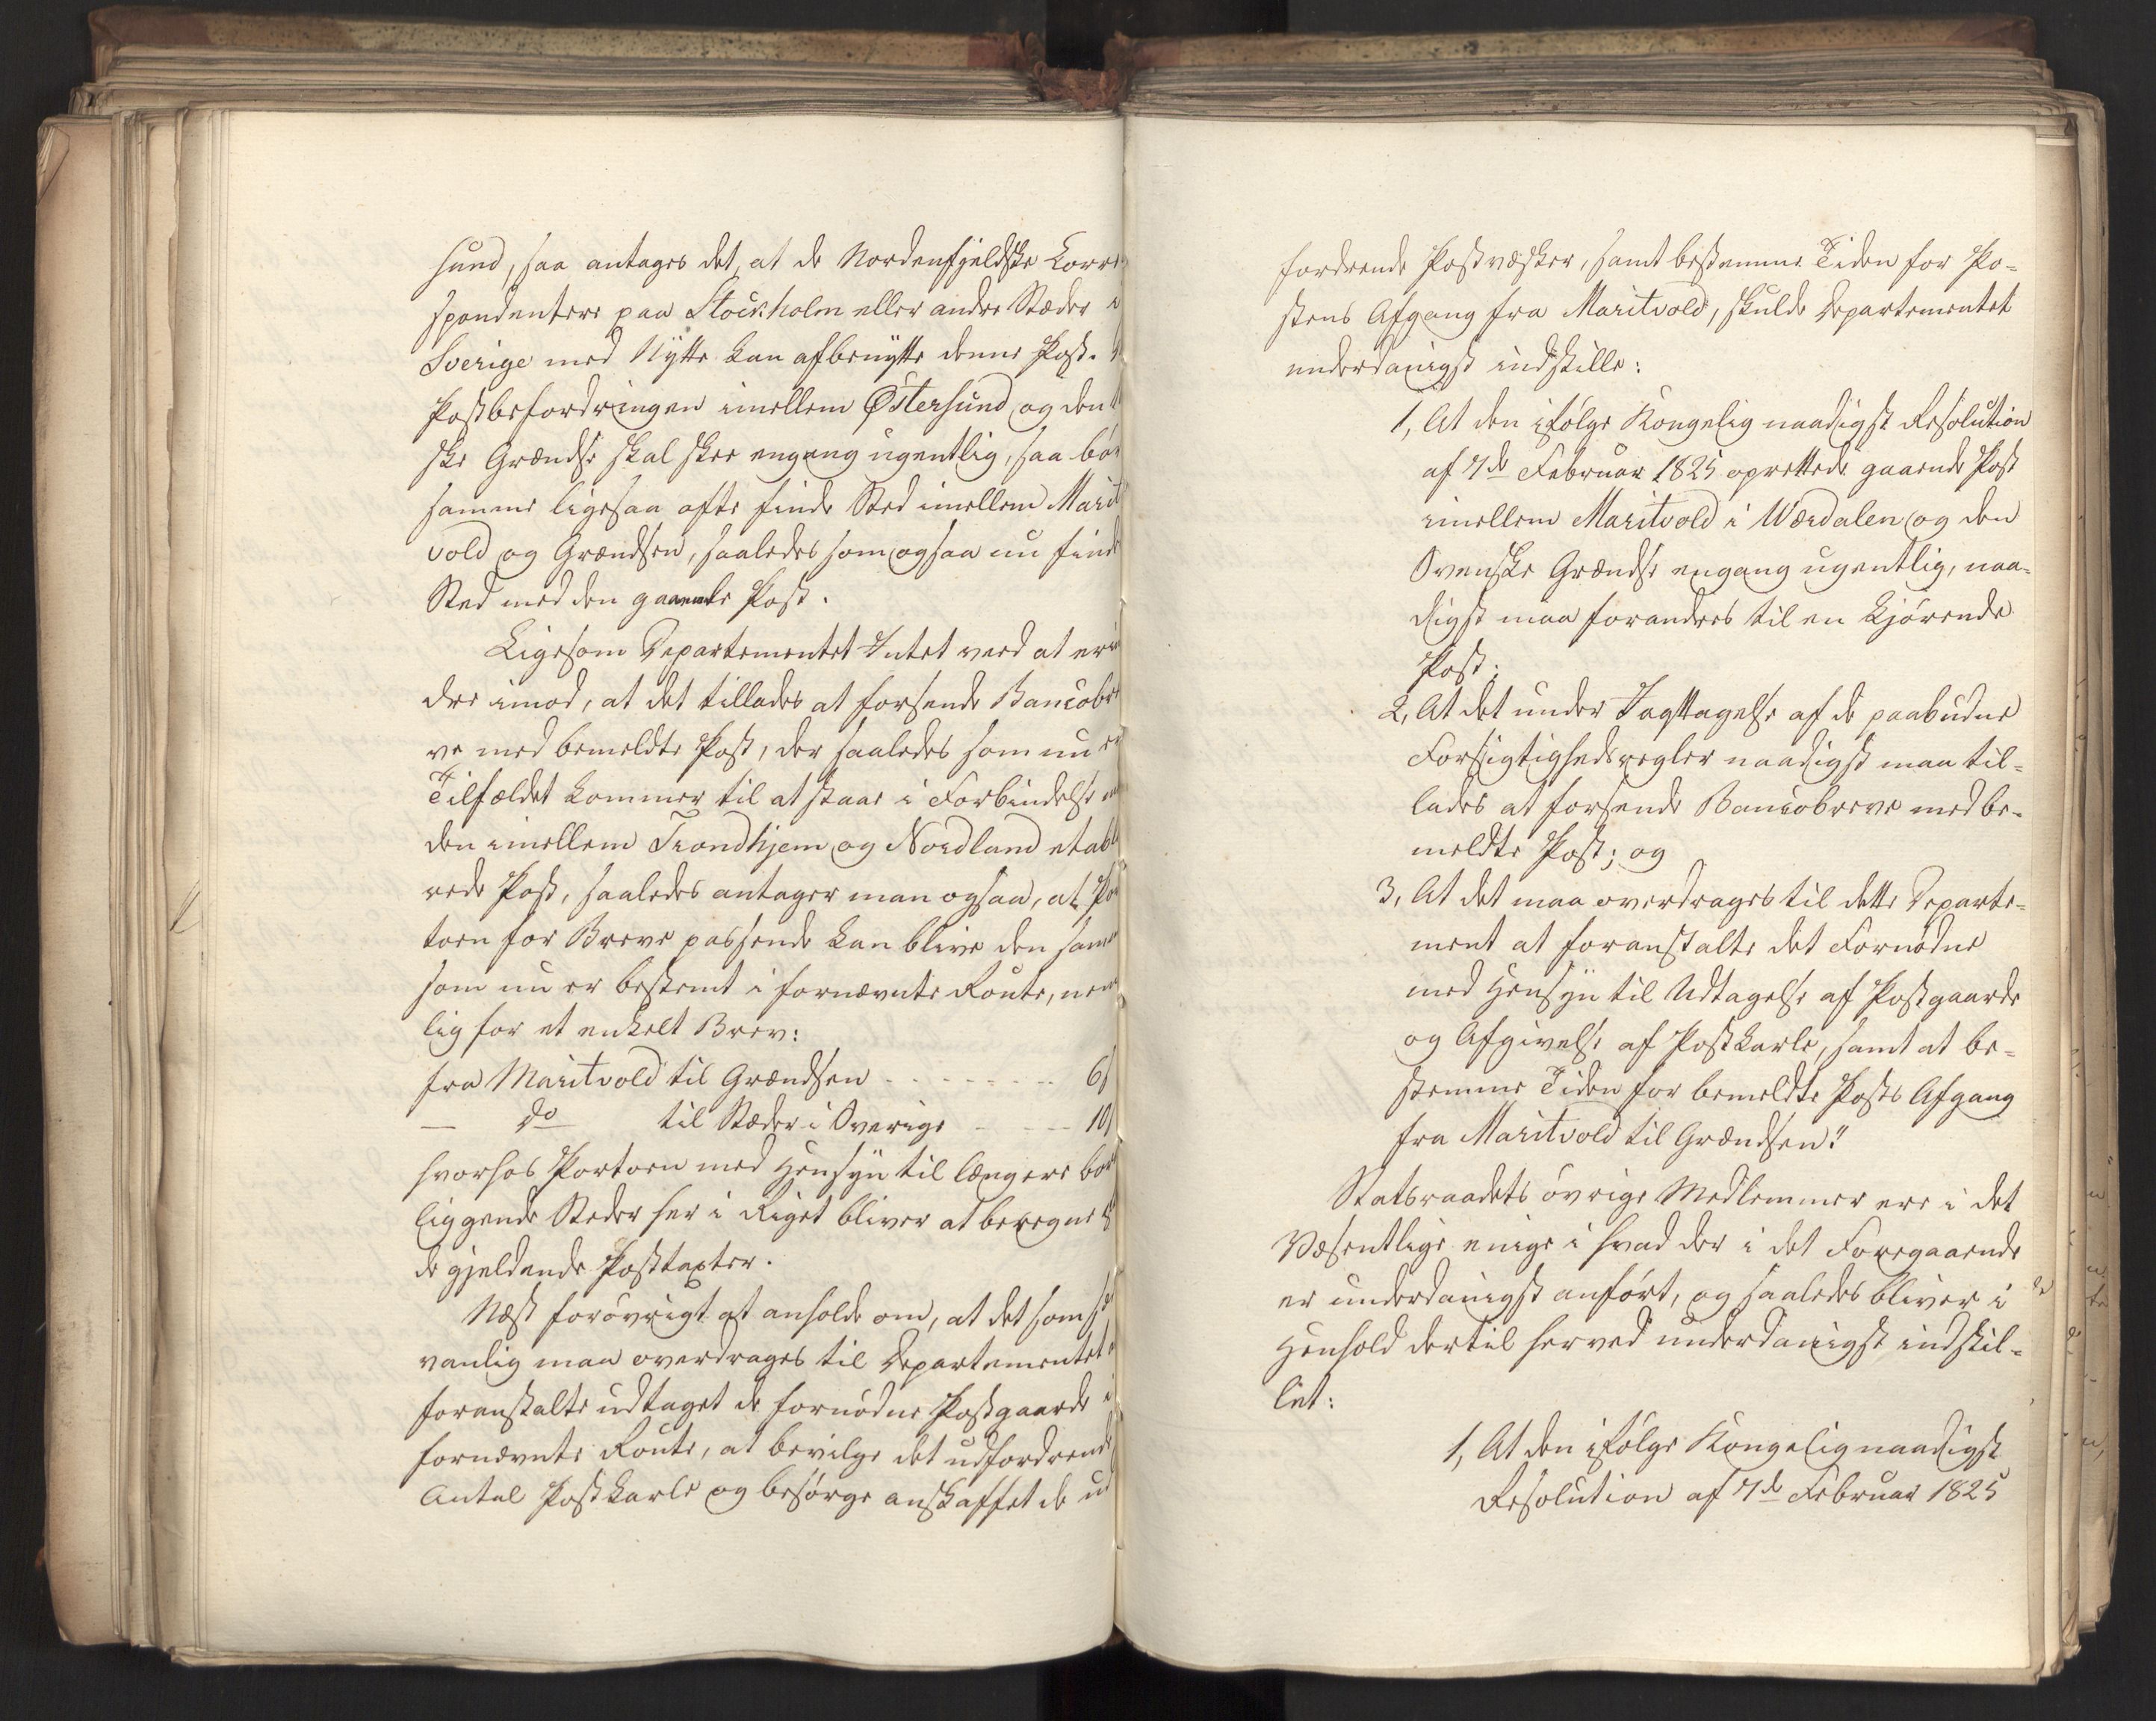 sund, saa antages det, at de Nordenfjeldske Corre
spondentere paa Stockholm eller andre Stæder i
Sverige med Nytte kan afbenytte denne Post.
Postbefordringen imellem Østersund og den
ske Grændse skal skee engang ugentlig, saa bør
samme ligesaa ofte finde Sted imellem Marit
vold og Grændsen, saaledes som ogsaa nu finde
Sted med den gaaende Post.
Ligesom Departementet Intet veed at erin
dre imod, at det tillades at forsende Bancobre
ve med bemeldte Post, der saaledes som nu er
Tilfældet kommer til at staae i Forbindelse
den imellem Trondhjem og Nordland etabl
rede Post, saaledes antager man ogsaa, at Por
toen for Breve passende kan blive den samme
som nu er bestemt i fornævnte Route, nem
lig for et enkelt Brev:
fra Maritvold til Grændsen - - - - - - - - 6ſ
— do til Stæder i Sverige - - - - 10ſ
hvorhos Portoen med Hensyn til længere bort
liggende Steder her i Riget bliver at beregne
de gjeldende Posttaxter.
Næst forøvrigt at anholde om, at det som
vanlig maa overdrages til Departementet
foranstalte udtaget de fornødne Postgaarde i
fornævnte Route, at bevilge det udfordrende
Antal Postkarle og besørge anskaffet de ud
fordrende Postvæsker, samt bestemme Tiden for Po-
stens Afgang fra Maritvold, skulde Departementet
underdanigst indstille:
1, At den ifølge Kongelig naadigst Resolution
af 7de Februar 1825 oprettede gaaende Post
imellem Maritvold i Værdalen og den
Svenske Grændse engang ugentlig, naa-
digst maa forandres til en kjørende
Post;
2, At det under Iagttagelse af de paabudne
Forsigtighedsregler naadigst maa til-
lades at forsende Bancobreve med be-
meldte Post; og
3, At det maa overdrages til dette Departe-
ment at foranstalte det Fornødne
med Hensyn til Udtagelse af Postgaarde
og Afgivelse af Postkarle, samt at be-
stemme Tiden for bemeldte Posts Afgang
fra Maritvold til Grændsen."
Statsraadets øvrige Medlemmer ere i det
Væsentlige enige i hvad der i det Foregaaende
er underdanigst anført, og saaledes bliver i
Henhold dertil herved underdanigst indstil-
let:
1, At den ifølge Kongelig naadigst
Resolution af 7de Februar 1825